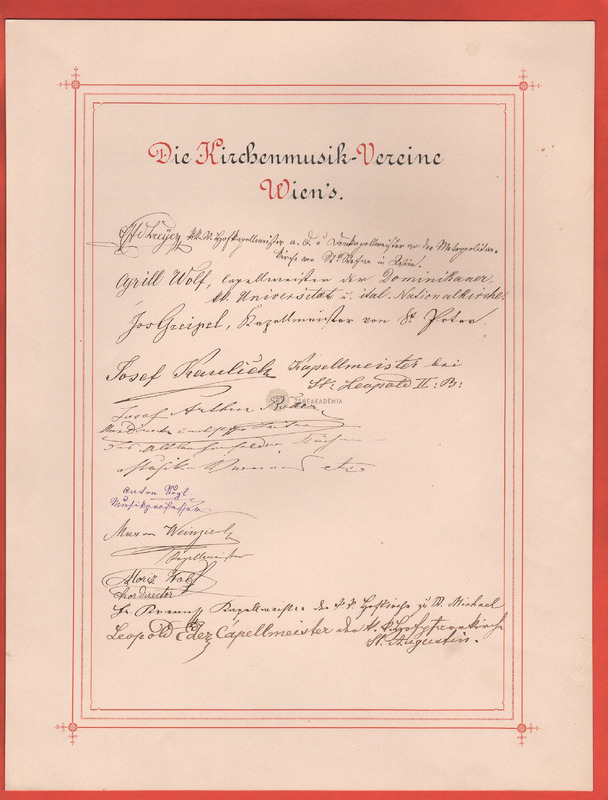 Die Kirchenmusik-Vereine
Wien's.
k.k. Hofkapellmeister a. D. u Domkapellmeister an der Metropolitan-
Kirche von St. Stefan in Wien.
Cyrill Wolf, Capellmeister der Dominikaner
kk. Universität u. ital. Nationalkirche.
Jos Greipel, Kapellmeister von St. Peter.
Josef Kaulich Kapellmeister bei
St: Leopold II: B:
ZENEAKADÉMIA
Josef Arthur
des Altlerchenfelder Kirchen
Musik Vereines etc
Anton Vogl
Musikprofessor
Max von Weinzierl
Kapellmeister
Moriz Wolf
Chordirector
Fr. Krenn Kapellmeister der k. k. Hofkirche zu St. Michael
Leopold Eder Capellmeister der k. k. Hofpfarrkirche
St. Augustin.